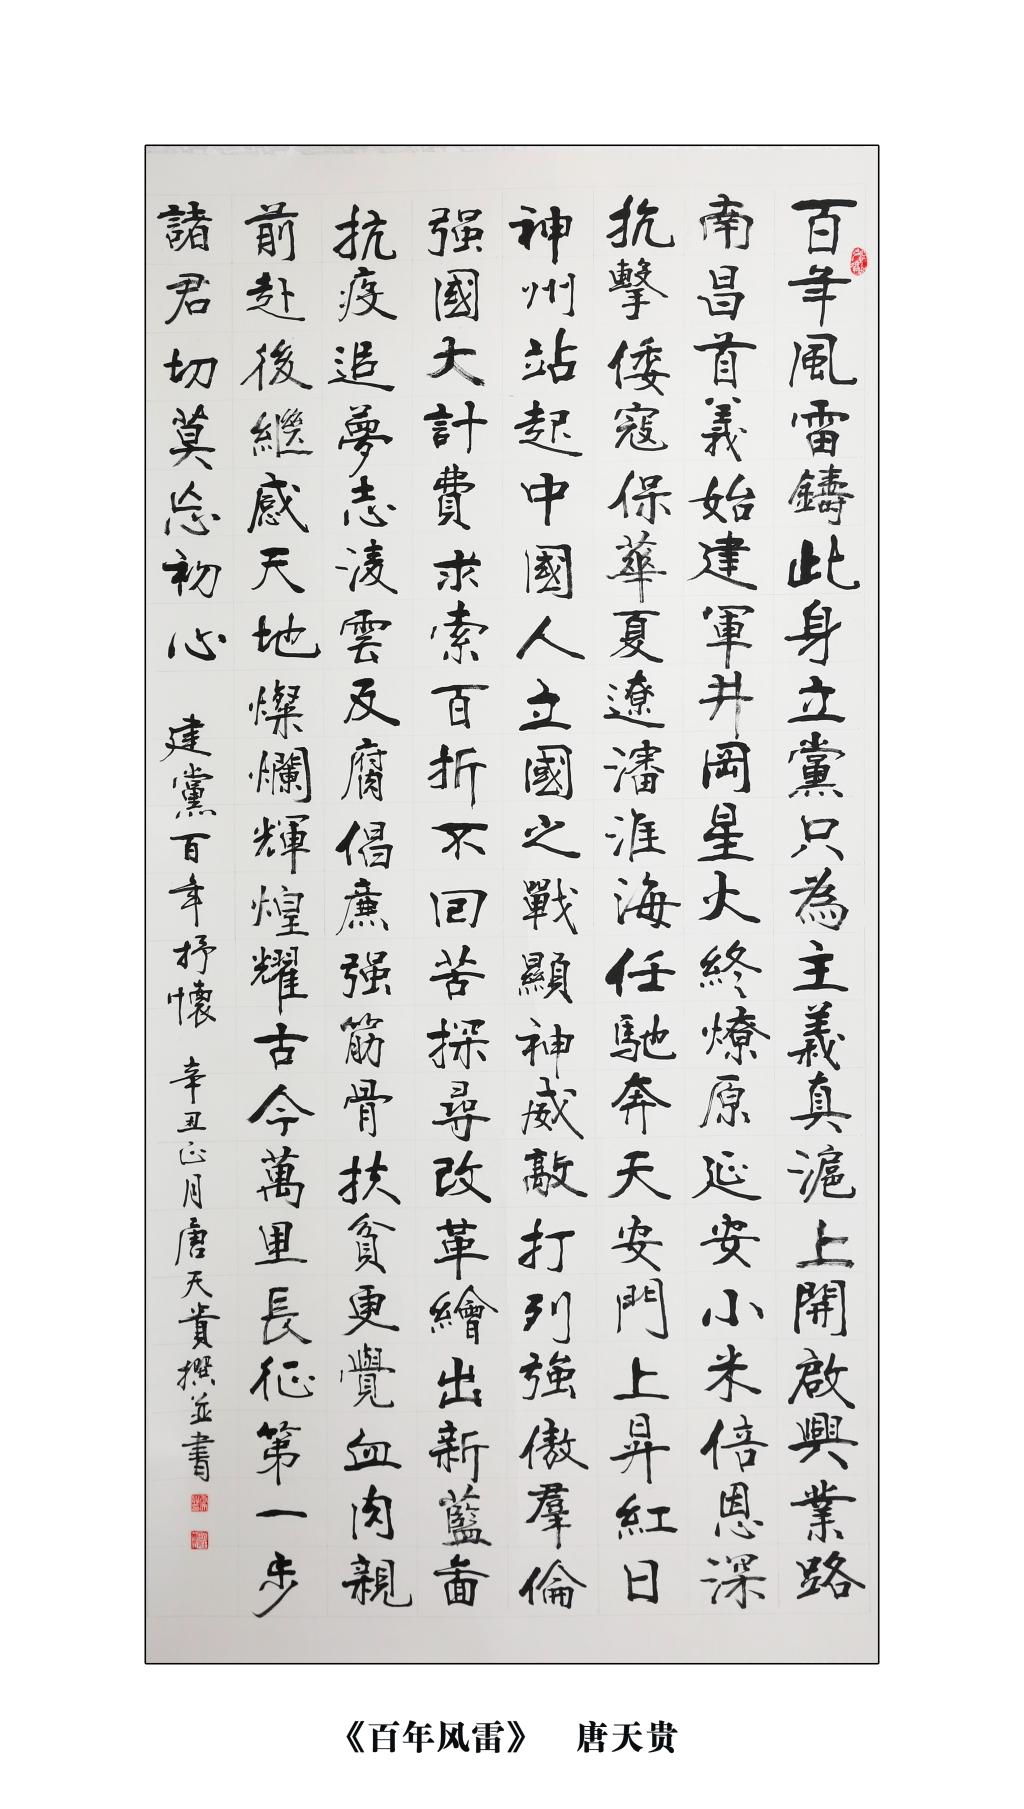 百年風雷鑄此身立黨只為主義真滬上開啟興業路
南昌首義始建軍井岡星火終燎原延安小米倍恩深
抗擊倭寇保華夏遼瀋淮海任馳奔天安門上昇紅日
神州站起中國人立國之戰顯神威敲打列強傲羣倫
强國大計費求索百折不回苦探尋改革繪出新藍畵
抗疫追夢志淩雲反腐倡廉强筋骨扶貧更覺血肉親
前赴後繼感天地燦爛輝煌耀古今萬里長征第一步
諸君切莫忘初心 建黨百年抒懷 辛丑正月唐天貴撰並書
《百年风雷》 唐天贵